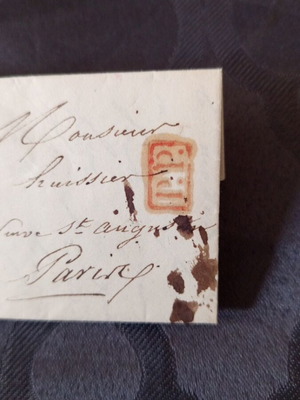 Monsieur
huissier
neuve St. Augustin
Paris
P.P.